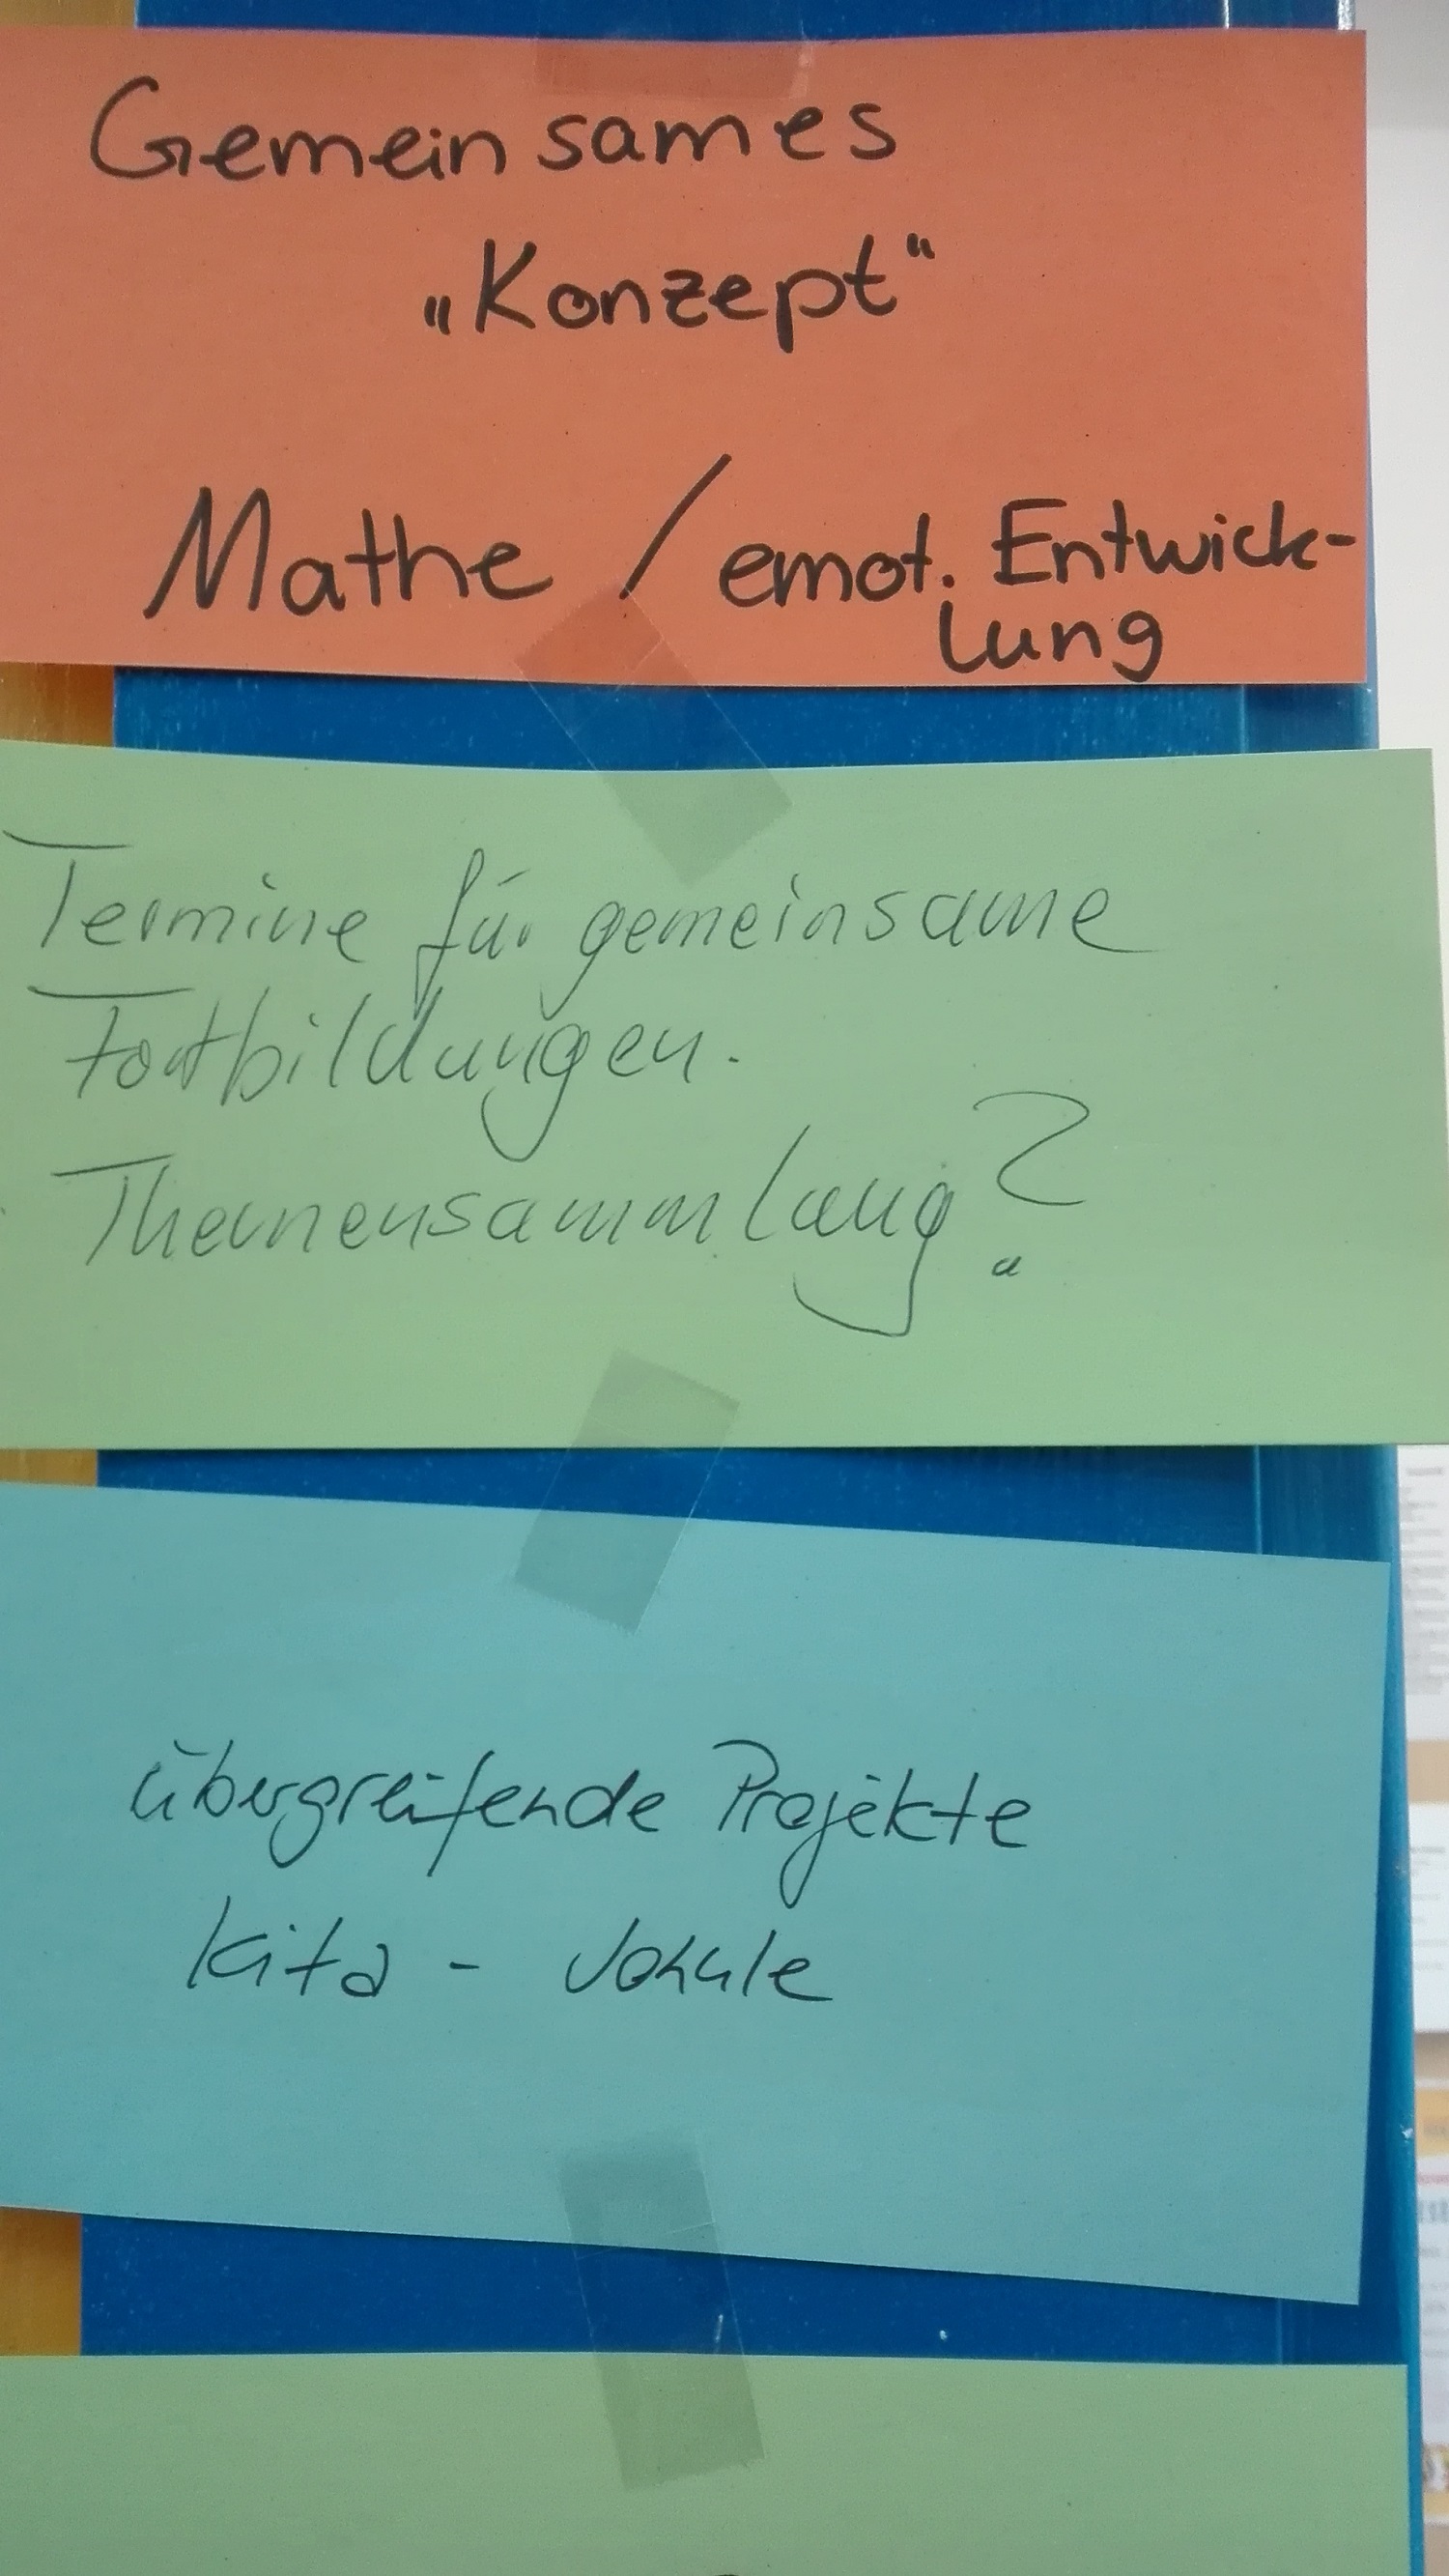 Gemeinsames
„Konzept“
Mathe / emot. Entwick-
lung
Termine für gemeinsame
Fortbildungen.
Themensammlung?
übergreifende Projekte
Kita - Schule